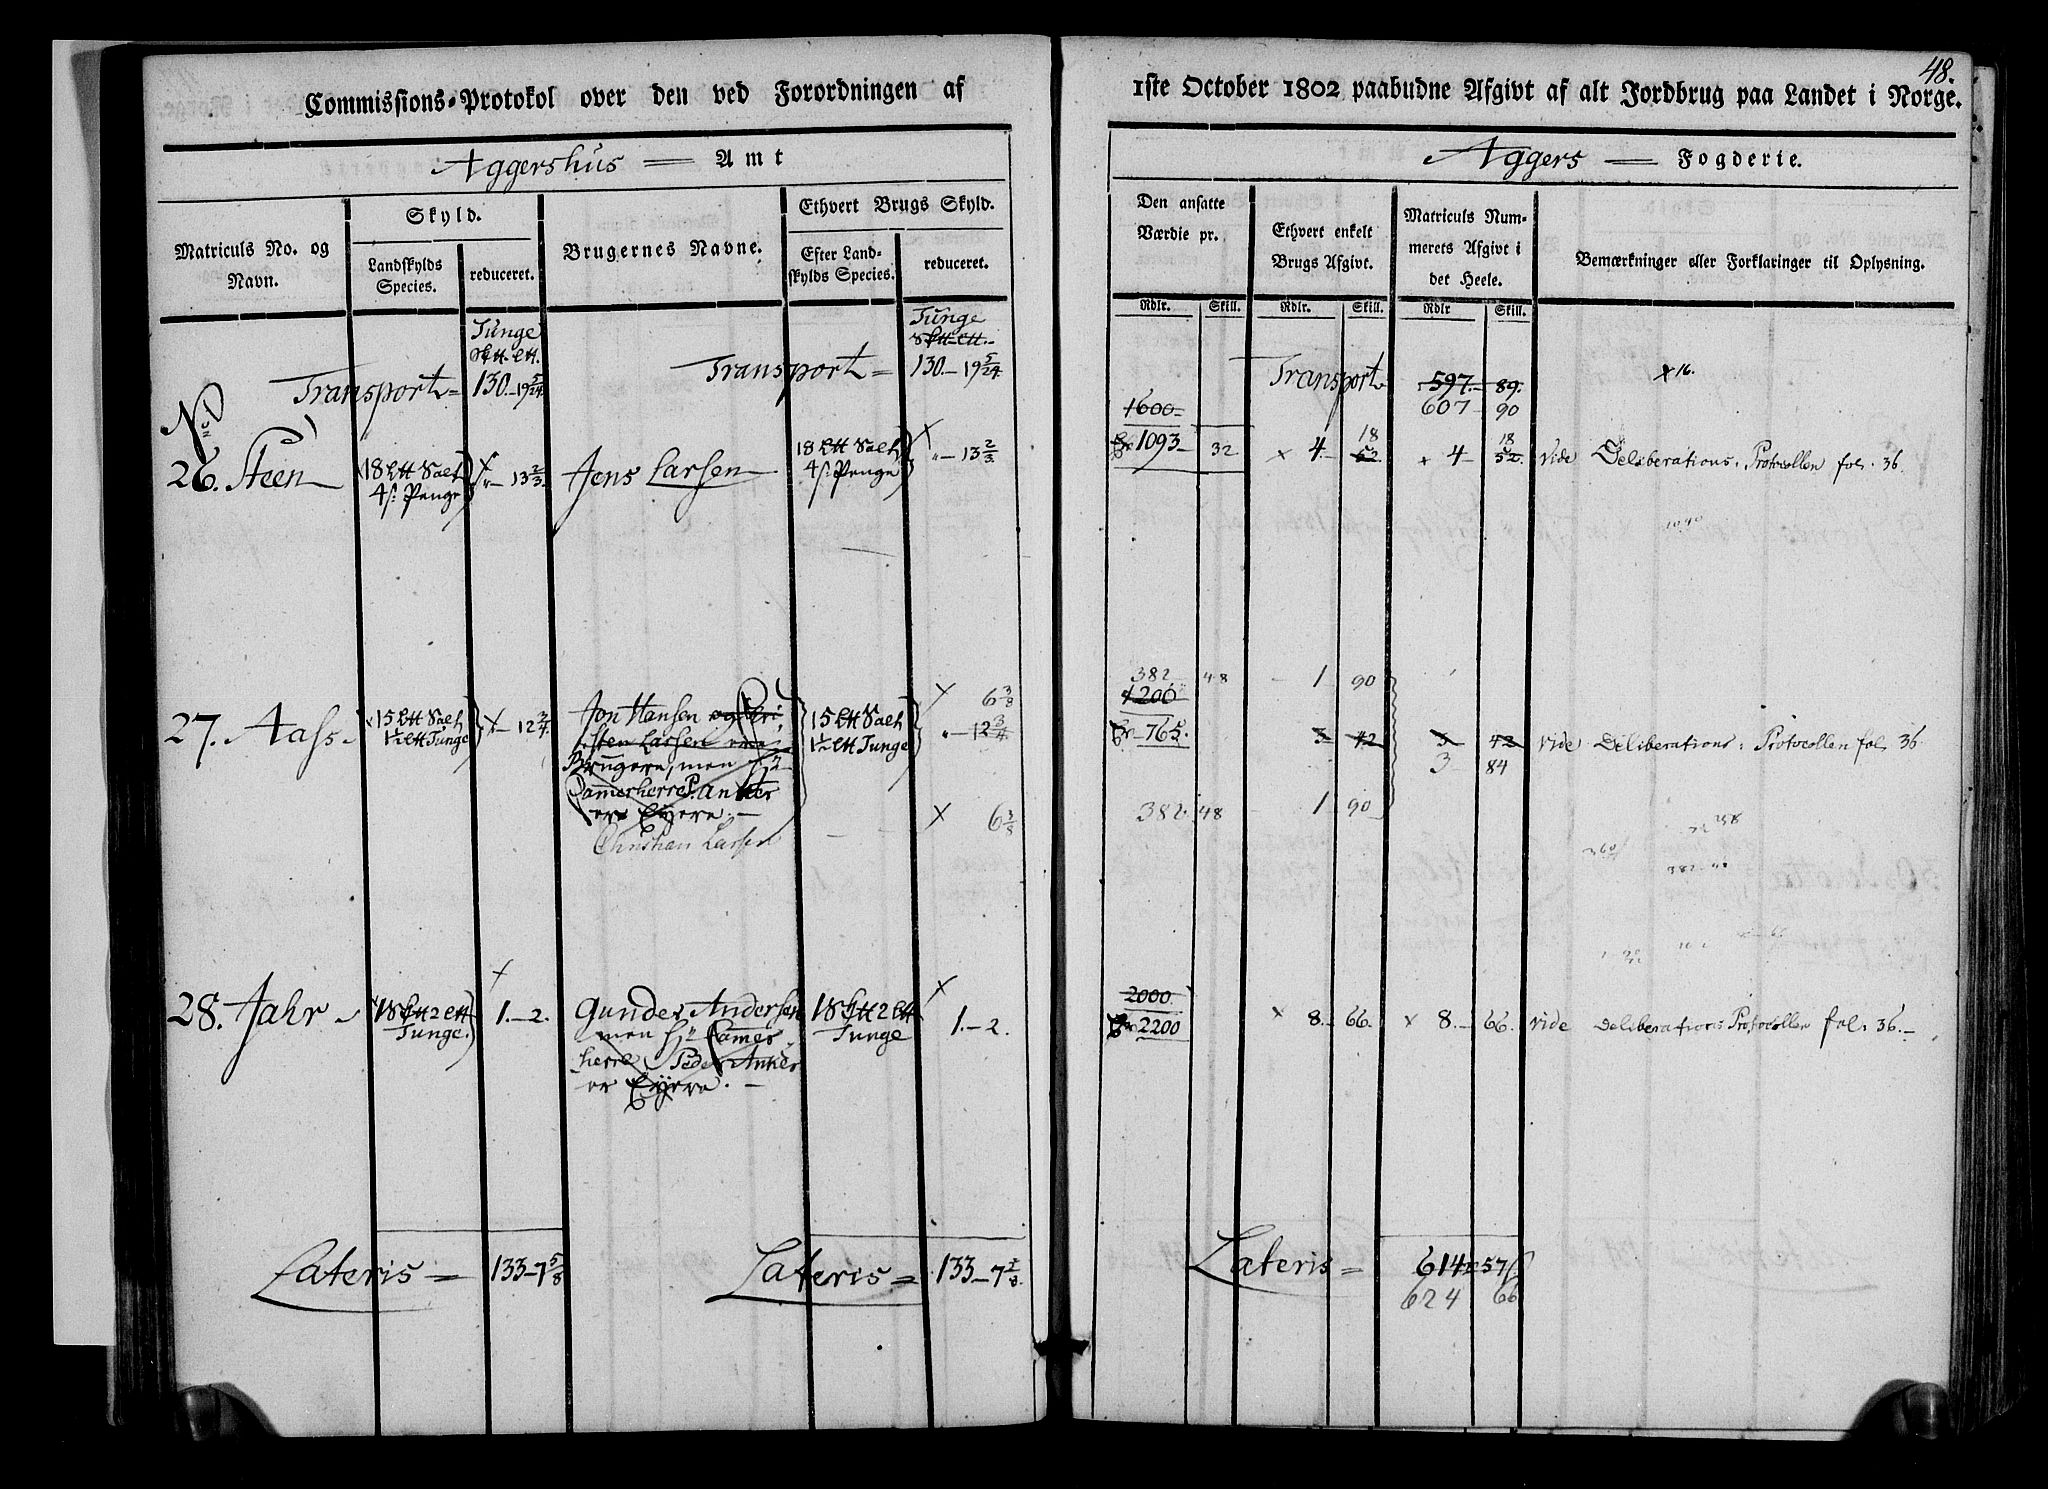 48.
Commissions-Protokol over den ved Forordningen af 1ste October 1802 paabudne Afgivt af alt Jordbrug paa Landet i Norge.
Aggershus Amt
Aggers Fogderie.
Matriculs No. og Navn.
Skyld.
Landskylds Species.
reduceret.
Brugernes Navne.
Ethvert Brugs Skyld.
Efter Landskylds Species.
reduceret.
Den ansatte Værdie pr.
Ethvert enkelt Brugs Afgivt.
Matriculs Nummerets Afgivt i det Heele.
Bemærkninger eller Forklaringer til Oplysning.
Rdlr. Skill. Rdlr. Skill. Rdlr Skill.
Tunge
Tunge
Transport 130.-19 5/24
Transport 130.-19 5/24
Transport 597.-89.
607 90
16.
No
26. Steen 18 Salt 4 s. Penge 13 2/3. Jens Larsen 18 Salt 4 s. Penge 13 2/3
1600
1093 32 4 18 52 4 18 52. vide Deliberations Protocollen fol. 36.
382 48 1 90 6 3/8
27. Aass 15 Salt 1½ Tunge 12 3/4 Jon Hansen og Kri
sten Larsen ere
Brugere, men Hr
Camerherre P. Anker
er Eyere.
Christian Larsen
15 Salt 1½ Tunge 12 3/4
6 3/8
1200
765. 3 42 3 42 vide Deliberations Protocollen fol. 36
3 84
382 48 1 90
28. Jahr 18 2 Tunge. 1.-2. Gunder Andersen
men Hr Camer
herre Peder Anker
er Eyere.
18 2 Tunge 1.-2.
2000.
2200 8. 66. 8. 66. vide Deliberations Protocollen fol. 36.
Lateris 133-7 5/8
Lateris 133-7
Lateris 614 57
624 66